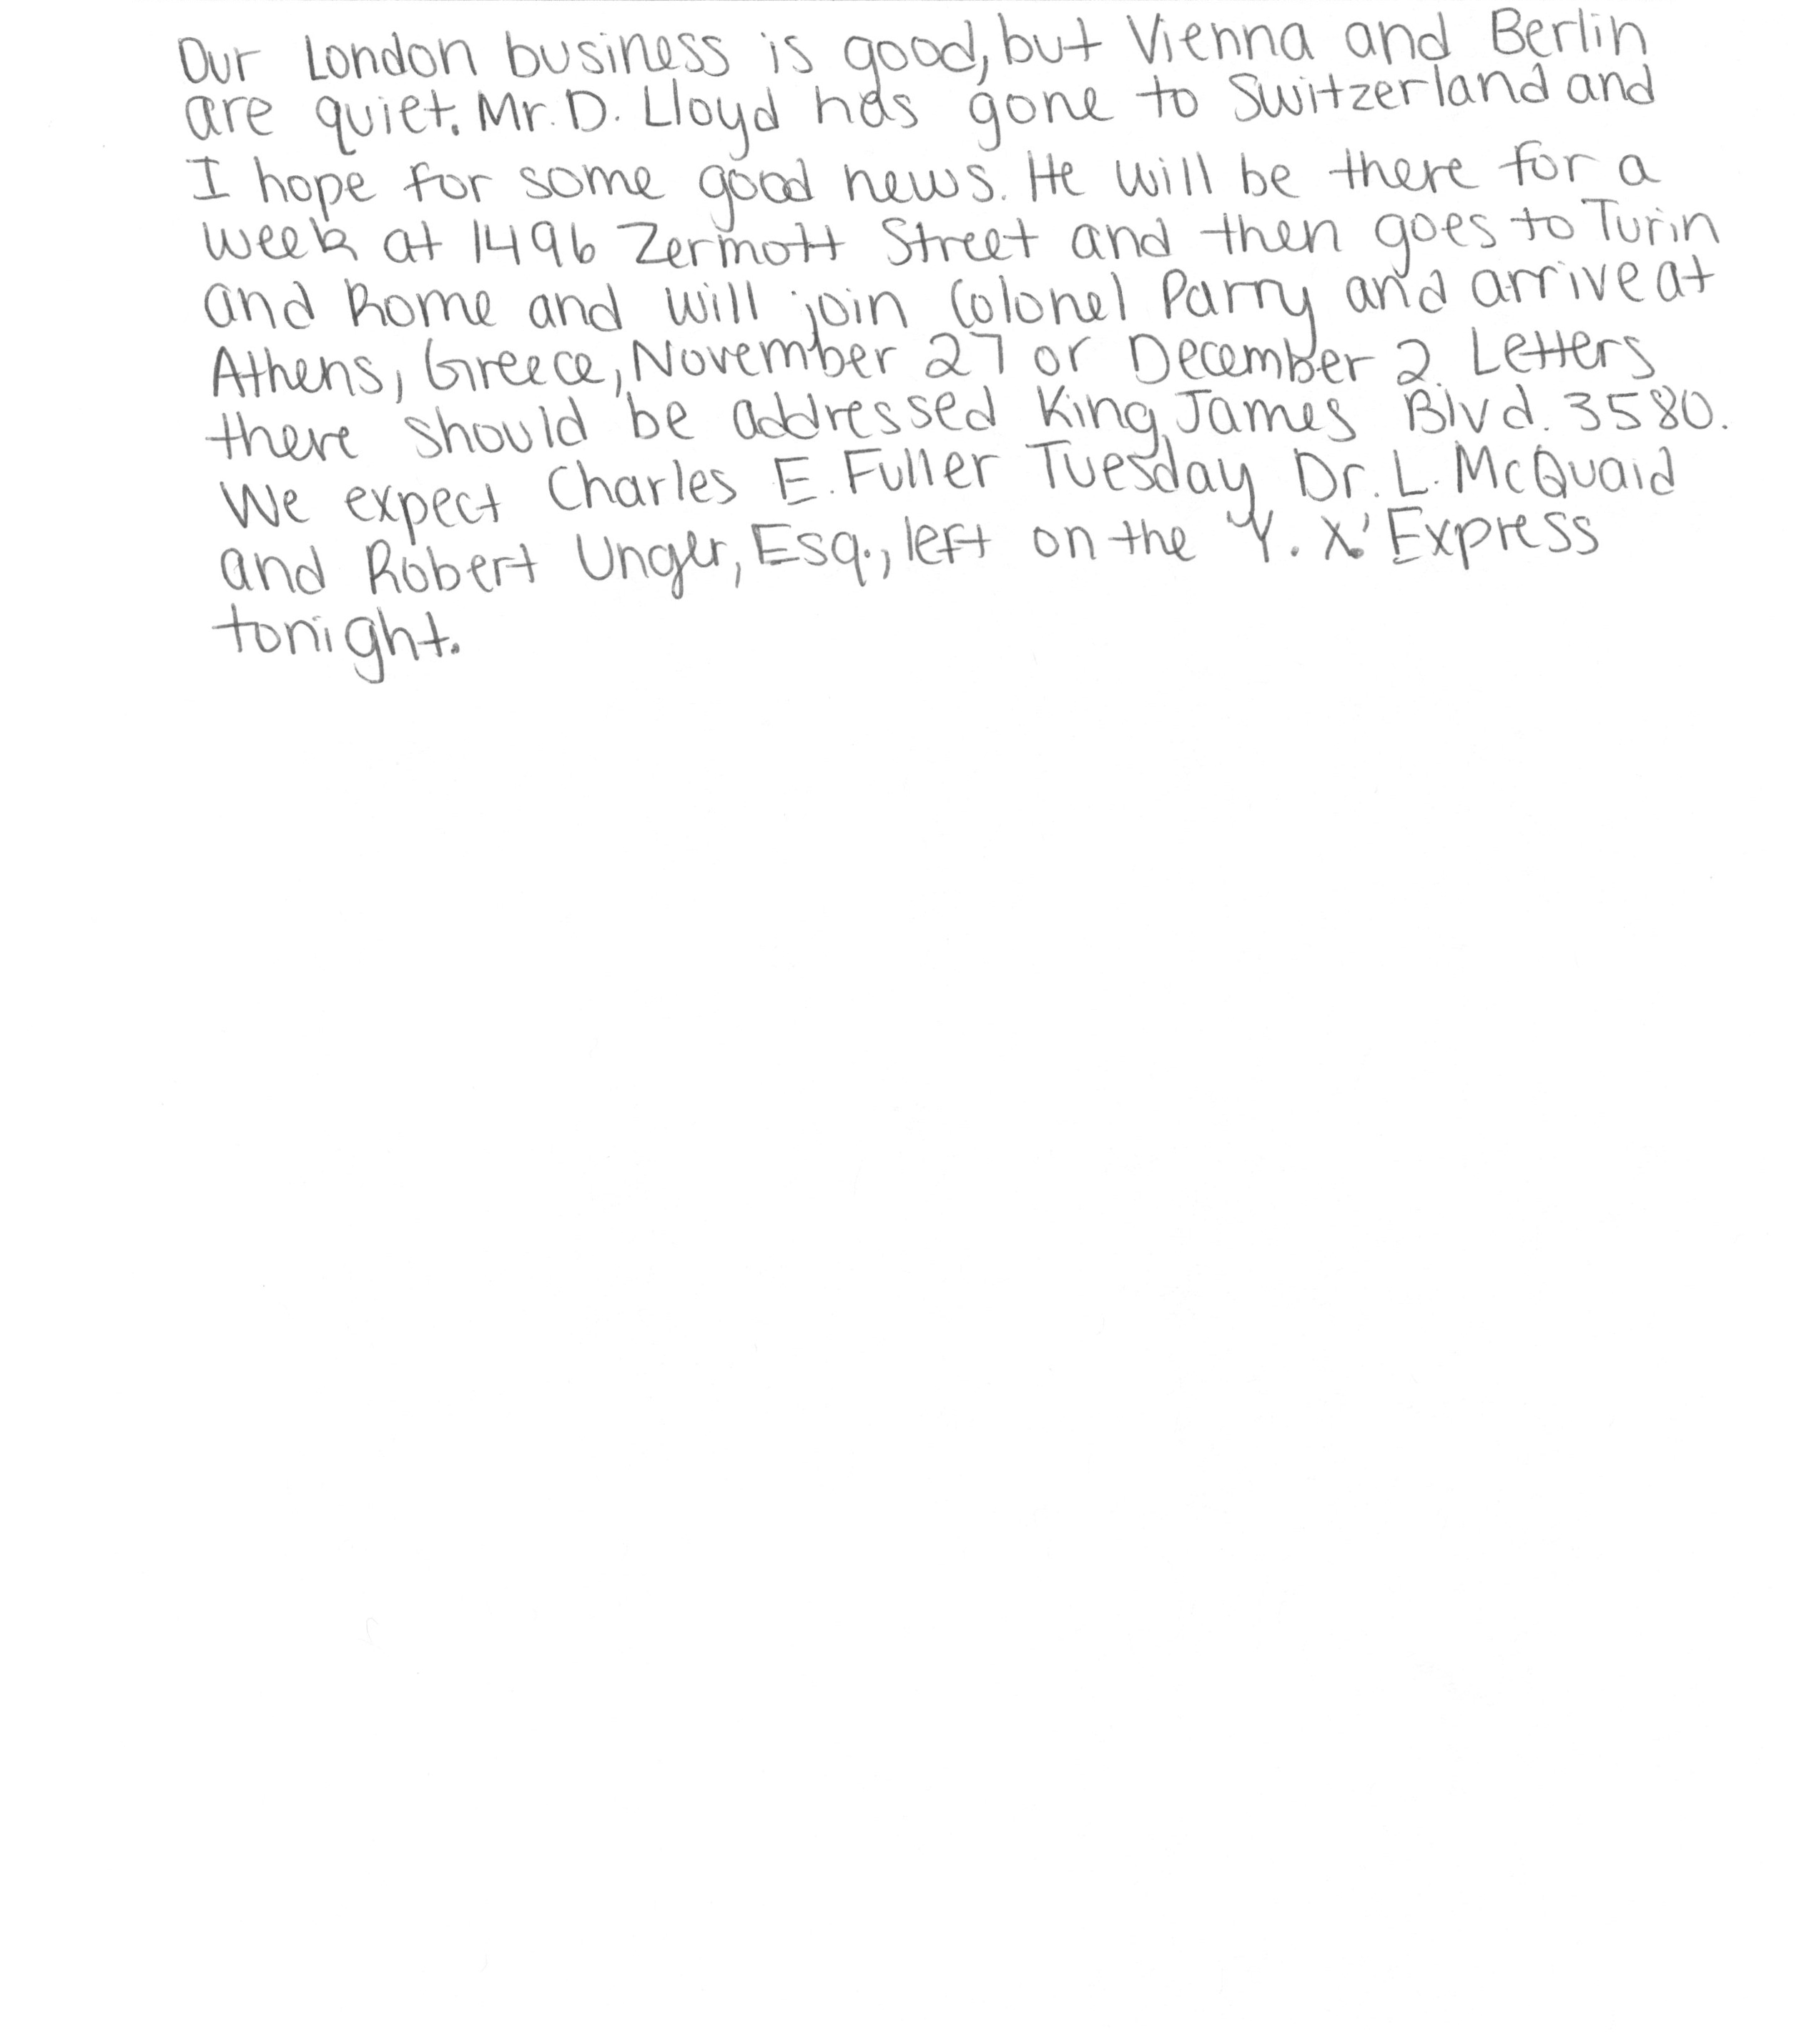 Our London business is good, but Vienna and Berlin
are quiet. Mr. D. Lloyd has gone to Switzerland and
I hope for some good news. He will be there for a
week at 1496 Zermott Street and then goes to Turin
and Rome and will join Colonel Parry and arrive at
Athens, Greece, November 27 or December 2. Letters
there should be addressed King James Blvd. 3580.
We expect Charles E. Fuller Tuesday Dr. L. McQuaid
and Robert Unger, Esq., left on the "Y. X." Express
tonight.